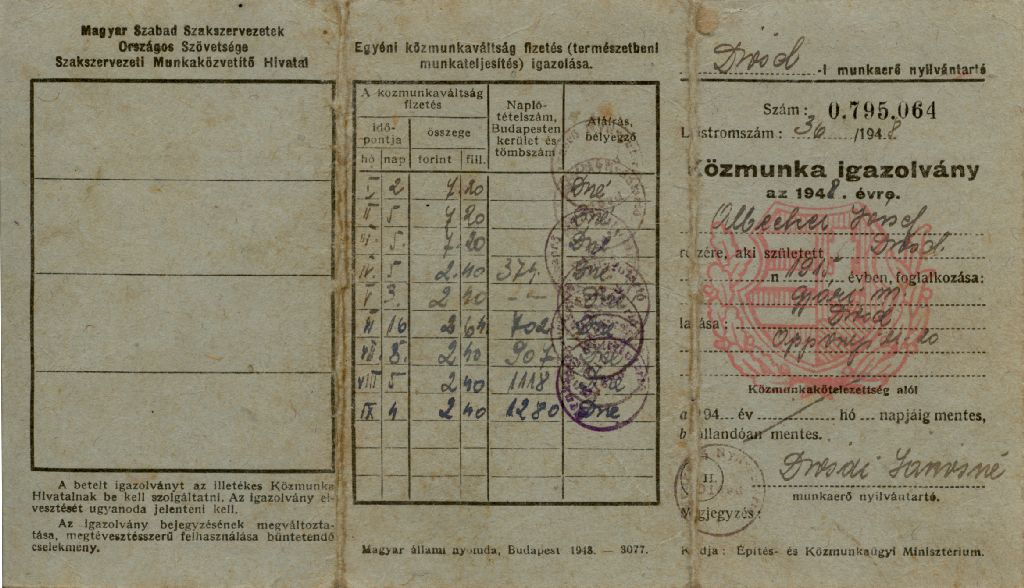 Magyar Szabad Szakszervezetek
Országos Szövetsége
Szakszervezeti Munkaközvetítő Hivatal
A betelt igazolványt az illetékes Közmunka
Hivatalnak be kell szolgáltatni. Az igazolvány el-
vesztését ugyanoda jelenteni kell.
Az igazolvány bejegyzésének megváltozta-
tása, megtévesztésszerű felhasználása büntetendő
cselekmény.
Egyéni közmunkaváltság fizetés (természetbeni
munkateljesítés) igazolása.
A közmunkaváltság fizetés
Napló-tételszám, Budapesten kerület és tömbszám
Aláírás, bélyegző
idő-pontja
összege
hó nap forint fill.
V 2 7 20 Dné
II 5 7 20 Dné
III 5. 7 20 Dné
IV. 5 2 40 374. Dné
V 3. 2 40 - - Dné
VI 16 2 64 702 Dné
VII. 8. 2 40 907 Dné
VIII 5 2 40 1118 Dné
IX 4 2 40 1280 Dné
Magyar állami nyomda, Budapest 1948. — 3077.
-i munkaerő nyilvántartó
Szám: 0.795.064
strom szám: 36 /1948
özmunka igazolvány
az 1948. évre.
József
részére, aki született
n 1915 évben, foglalkozása:
gyári m.
lakása:
Közmunkakötelezettség alól
a 194 év hó napjáig mentes,
b állandóan mentes.
Jánosné
munkaerő nyilvántartó.
egjegyzés:
K adja: Építés- és Közmunkaügyi Minisztérium.